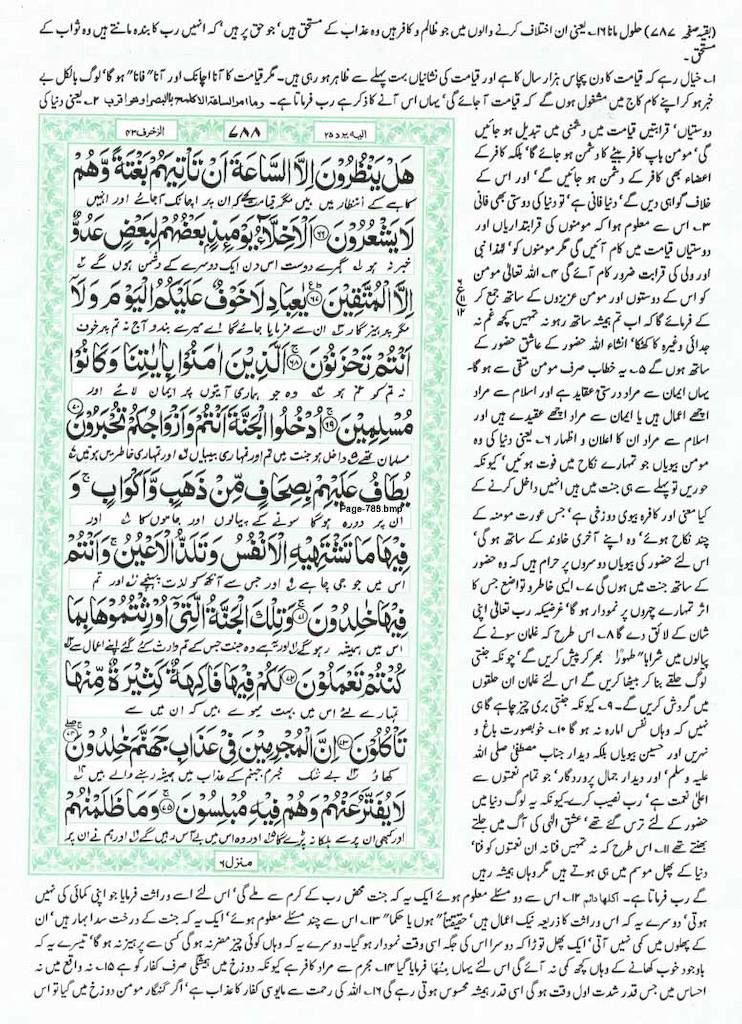 (بقیہ صفحہ ۷۸۷) حلول مانا ۱۶۔ یعنی ان اختلاف کرنے والوں میں جو ظالم و کافر ہیں وہ عذاب کے مستحق ہیں' جو حق پر ہیں' کہ انہیں رب کا بندہ مانتے ہیں وہ ثواب کے
مستحق۔
۱۔ خیال رہے کہ قیامت کا دن پچاس ہزار سال کا ہے اور قیامت کی نشانیاں بہت پہلے سے ظاہر ہو رہی ہیں۔ مگر قیامت کا آنا اچانک اور آنا" فانا" ہو گا' لوگ بالکل بے
خبر ہو کر اپنے کام کاج میں مشغول ہوں گے کہ قیامت آ جائے گی' یہاں اس آنے کا ذکر ہے رب فرماتا ہے۔ وما امر الساعۃ الا کلمح بالبصر او ھو اقرب ۲۔ یعنی دنیا کی
الیہ یرد ۲۵
۷۸۸
الزخرف ۴۳
هَلْ يَنْظُرُوْنَ اِلَّا السَّاعَةَ اَنْ تَاْتِيَهُمْ بَغْتَةً وَّهُمْ
کاہے کے انتظار میں ہیں مگر قیامت کے کہ ان پر اچانک آ جائے اور انہیں
لَا يَشْعُرُوْنَ ۶۶ اَلْاَخِلَّآءُ يَوْمَىِٕذٍۭ بَعْضُهُمْ لِبَعْضٍ عَدُوٌّ
خبر نہ ہو گہرے دوست اس دن ایک دوسرے کے دشمن ہوں گے
اِلَّا الْمُتَّقِيْنَ ۶۷ يٰعِبَادِ لَا خَوْفٌ عَلَيْكُمُ الْيَوْمَ وَلَاۤ
مگر پرہیزگار ان سے فرمایا جائے گا اے میرے بندو آج نہ تم پر خوف
اَنْتُمْ تَحْزَنُوْنَ ۶۸ اَلَّذِيْنَ اٰمَنُوْا بِاٰيٰتِنَا وَكَانُوْا
نہ تم کو غم ہو وہ جو ہماری آیتوں پر ایمان لائے اور
مُسْلِمِيْنَ ۶۹ اُدْخُلُوا الْجَنَّةَ اَنْتُمْ وَاَزْوَاجُكُمْ تُحْبَرُوْنَ ۷۰
مسلمان تھے داخل ہو جنت میں تم اور تمہاری بیبیاں اور تمہاری خاطریں ہوتیں
يُطَافُ عَلَيْهِمْ بِصِحَافٍ مِّنْ ذَهَبٍ وَّاَكْوَابٍ ۚ وَ
Page-788.bmp
ان پر دورہ ہوگا سونے کے پیالوں اور جاموں کا اور
فِيْهَا مَا تَشْتَهِيْهِ الْاَنْفُسُ وَتَلَذُّ الْاَعْيُنُ ۚ وَاَنْتُمْ
اس میں جو جی چاہے اور جس سے آنکھ کو لذت پہنچے اور تم
فِيْهَا خٰلِدُوْنَ ۷۱ وَتِلْكَ الْجَنَّةُ الَّتِيْۤ اُوْرِثْتُمُوْهَا بِمَا
اس میں ہمیشہ رہو گے اور یہ ہے وہ جنت جس کے تم وارث کئے گئے اپنے اعمال سے
كُنْتُمْ تَعْمَلُوْنَ ۷۲ لَكُمْ فِيْهَا فَاكِهَةٌ كَثِيْرَةٌ مِّنْهَا
تمہارے لئے اس میں بہت میوے ہیں کہ ان میں سے
تَاْكُلُوْنَ ۷۳ اِنَّ الْمُجْرِمِيْنَ فِيْ عَذَابِ جَهَنَّمَ خٰلِدُوْنَ ۷۴
کھاؤ بے شک مجرم جہنم کے عذاب میں ہمیشہ رہنے والے ہیں
لَا يُفَتَّرُ عَنْهُمْ وَهُمْ فِيْهِ مُبْلِسُوْنَ ۷۵ وَمَا ظَلَمْنٰهُمْ
اور کبھی ان پر سے ہلکا نہ پڑے گا اور وہ اس میں بے آس رہیں گے اور ہم نے ان پر
منزل ۶
دوستیاں' قرابتیں قیامت میں دشمنی میں تبدیل ہو جائیں
گی' مومن باپ کافر بیٹے کا دشمن ہو جائے گا' بلکہ کافر کے
اعضاء بھی کافر کے دشمن ہو جائیں گے' اور اس کے
خلاف گواہی دیں گے' دنیا فانی ہے' تو دنیا کی دوستی بھی فانی
۳۔ اس سے معلوم ہوا کہ مومنوں کی قرابتداریاں اور
دوستیاں قیامت میں کام آئیں گی مگر مومنوں کو' لہذا نبی
اور ولی کی قرابت ضرور کام آئے گی ۴۔ اللہ تعالٰی مومن
کو اس کے دوستوں اور مومن عزیزوں کے ساتھ جمع کر
کے فرمائے گا کہ اب تم ہمیشہ ساتھ رہو نہ تمہیں کچھ غم نہ
جدائی وغیرہ کا کھٹکا' انشاء اللہ حضور کے عاشق حضور کے
ساتھ ہوں گے ۵۔ یہ خطاب صرف مومن متقی سے ہو گا۔
یہاں ایمان سے مراد درستی عقاید ہے اور اسلام سے مراد
اچھے اعمال ہیں یا ایمان سے مراد اچھے عقیدے ہیں اور
اسلام سے مراد ان کا اعلان و اظہار ۶۔ یعنی دنیا کی وہ
مومن بیویاں جو تمہارے نکاح میں فوت ہوئیں' کیونکہ
حوریں تو پہلے سے ہی جنت میں ہیں انہیں داخل کرنے کے
کیا معنی اور کافرہ بیوی دوزخی ہے' جس عورت مومنہ کے
چند نکاح ہوئے' وہ اپنے آخری خاوند کے ساتھ ہو گی'
اس لئے حضور کی بیویاں دوسروں پر حرام ہیں کہ وہ حضور
کے ساتھ جنت میں ہوں گی ۷۔ ایسی خاطر و تواضع جس کا
اثر تمہارے چہروں پر نمودار ہو گا' غرضیکہ رب تعالٰی اپنی
شان کے لائق دے گا ۸۔ اس طرح کہ غلمان سونے کے
پیالوں میں شرابا" طہورا" بھر کر پیش کریں گے' چونکہ جنتی
لوگ حلقے بنا کر بیٹھا کریں گے اس لئے غلمان ان حلقوں
میں گردش کریں گے۔ ۹۔ کیونکہ جنتی بری چیز چاہے گا ہی
نہیں کہ وہاں نفس امارہ نہ ہو گا ۱۰۔ خوبصورت باغ و
نہریں اور حسین بیویاں بلکہ دیدار جناب مصطفٰی صلی اللہ
علیہ و سلم' اور دیدار جمال پروردگار' جو تمام نعمتوں سے
اعلٰی نعمت ہے' رب نصیب کرے کیونکہ یہ لوگ دنیا میں
حضور کے لئے ترس گئے تھے' عشق الٰہی کی آگ میں جلتے
بھنتے تھے ۱۱۔ اس طرح کہ نہ تمہیں فنا نہ ان نعمتوں کو فنا'
دنیا کے پھل موسم میں ہی ہوتے ہیں مگر وہاں ہمیشہ رہیں
گے رب فرماتا ہے۔ اکلھا دائم ۱۲۔ اس سے دو مسئلے معلوم ہوئے ایک یہ کہ جنت محض رب کے کرم سے ملے گی' اس لئے اسے وراثت فرمایا جو اپنی کمائی کی نہیں
ہوتی' دوسرے یہ کہ اس وراثت کا ذریعہ نیک اعمال ہیں' حقیقتاً" ہوں یا حکماً" ۱۳۔ اس سے چند مسئلے معلوم ہوئے' ایک یہ کہ جنت کے درخت سدا بہار ہیں' ان
کے پھلوں میں کمی نہیں آتی' ایک پھل توڑا کہ دوسرا اس کی جگہ اسی وقت نمودار ہو گیا۔ دوسرے یہ کہ وہاں کوئی چیز مضر نہ ہو گی کسی سے پرہیز نہ ہو گا' تیسرے یہ کہ
باوجود خوب کھانے کے وہاں کچھ کمی نہ آئے گی اس لئے یہاں مِنْهَا فرمایا گیا ۱۴۔ مجرم سے مراد کافر ہے کیونکہ دوزخ میں ہمیشگی صرف کفار کو ہے ۱۵۔ نہ واقع میں نہ
احساس میں جس قدر شدت اول وقت ہو گی اسی قدر ہمیشہ محسوس ہوتی رہے گی ۱۶۔ اللہ کی رحمت سے مایوسی کفار کا عذاب ہے' اگر گنہگار مومن دوزخ میں گیا تو اس